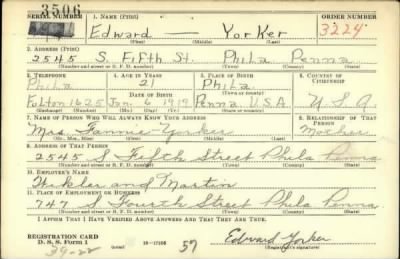 3506
SERIAL NUMBER 1. NAME (Print) ORDER NUMBER
Edward — Yorker 3224
(First) (Middle) (Last)
2. ADDRESS (Print)
2545 S. Fifth St. Phila Penna
(Number and street or R. F. D. number) (Town) (County) (State)
3. TELEPHONE 4. AGE IN YEARS 5. PLACE OF BIRTH 6. COUNTRY OF CITIZENSHIP
Phila 21 Phila
DATE OF BIRTH (Town or county)
Fulton 1625 Jan. 6 1919 Penna U.S.A. U.S.A.
(Exchange) (Number) (Mo.) (Day) (Yr.) (State or country)
7. NAME OF PERSON WHO WILL ALWAYS KNOW YOUR ADDRESS 8. RELATIONSHIP OF THAT PERSON
Mrs. Fannie Yorker Mother
(Mr., Mrs., Miss) (First) (Middle) (Last)
9. ADDRESS OF THAT PERSON
2545 S Fifth Street Phila Penna
(Number and street or R. F. D. number) (Town) (County) (State)
10. EMPLOYER'S NAME
and Martin
11. PLACE OF EMPLOYMENT OR BUSINESS
747 S Fourth Street Phila Penna
(Number and street or R. F. D. number) (Town) (County) (State)
I AFFIRM THAT I HAVE VERIFIED ABOVE ANSWERS AND THAT THEY ARE TRUE.
REGISTRATION CARD
D. S. S. Form 1 16—17105 57 Edward Yorker
39-22 (Registrant's signature)